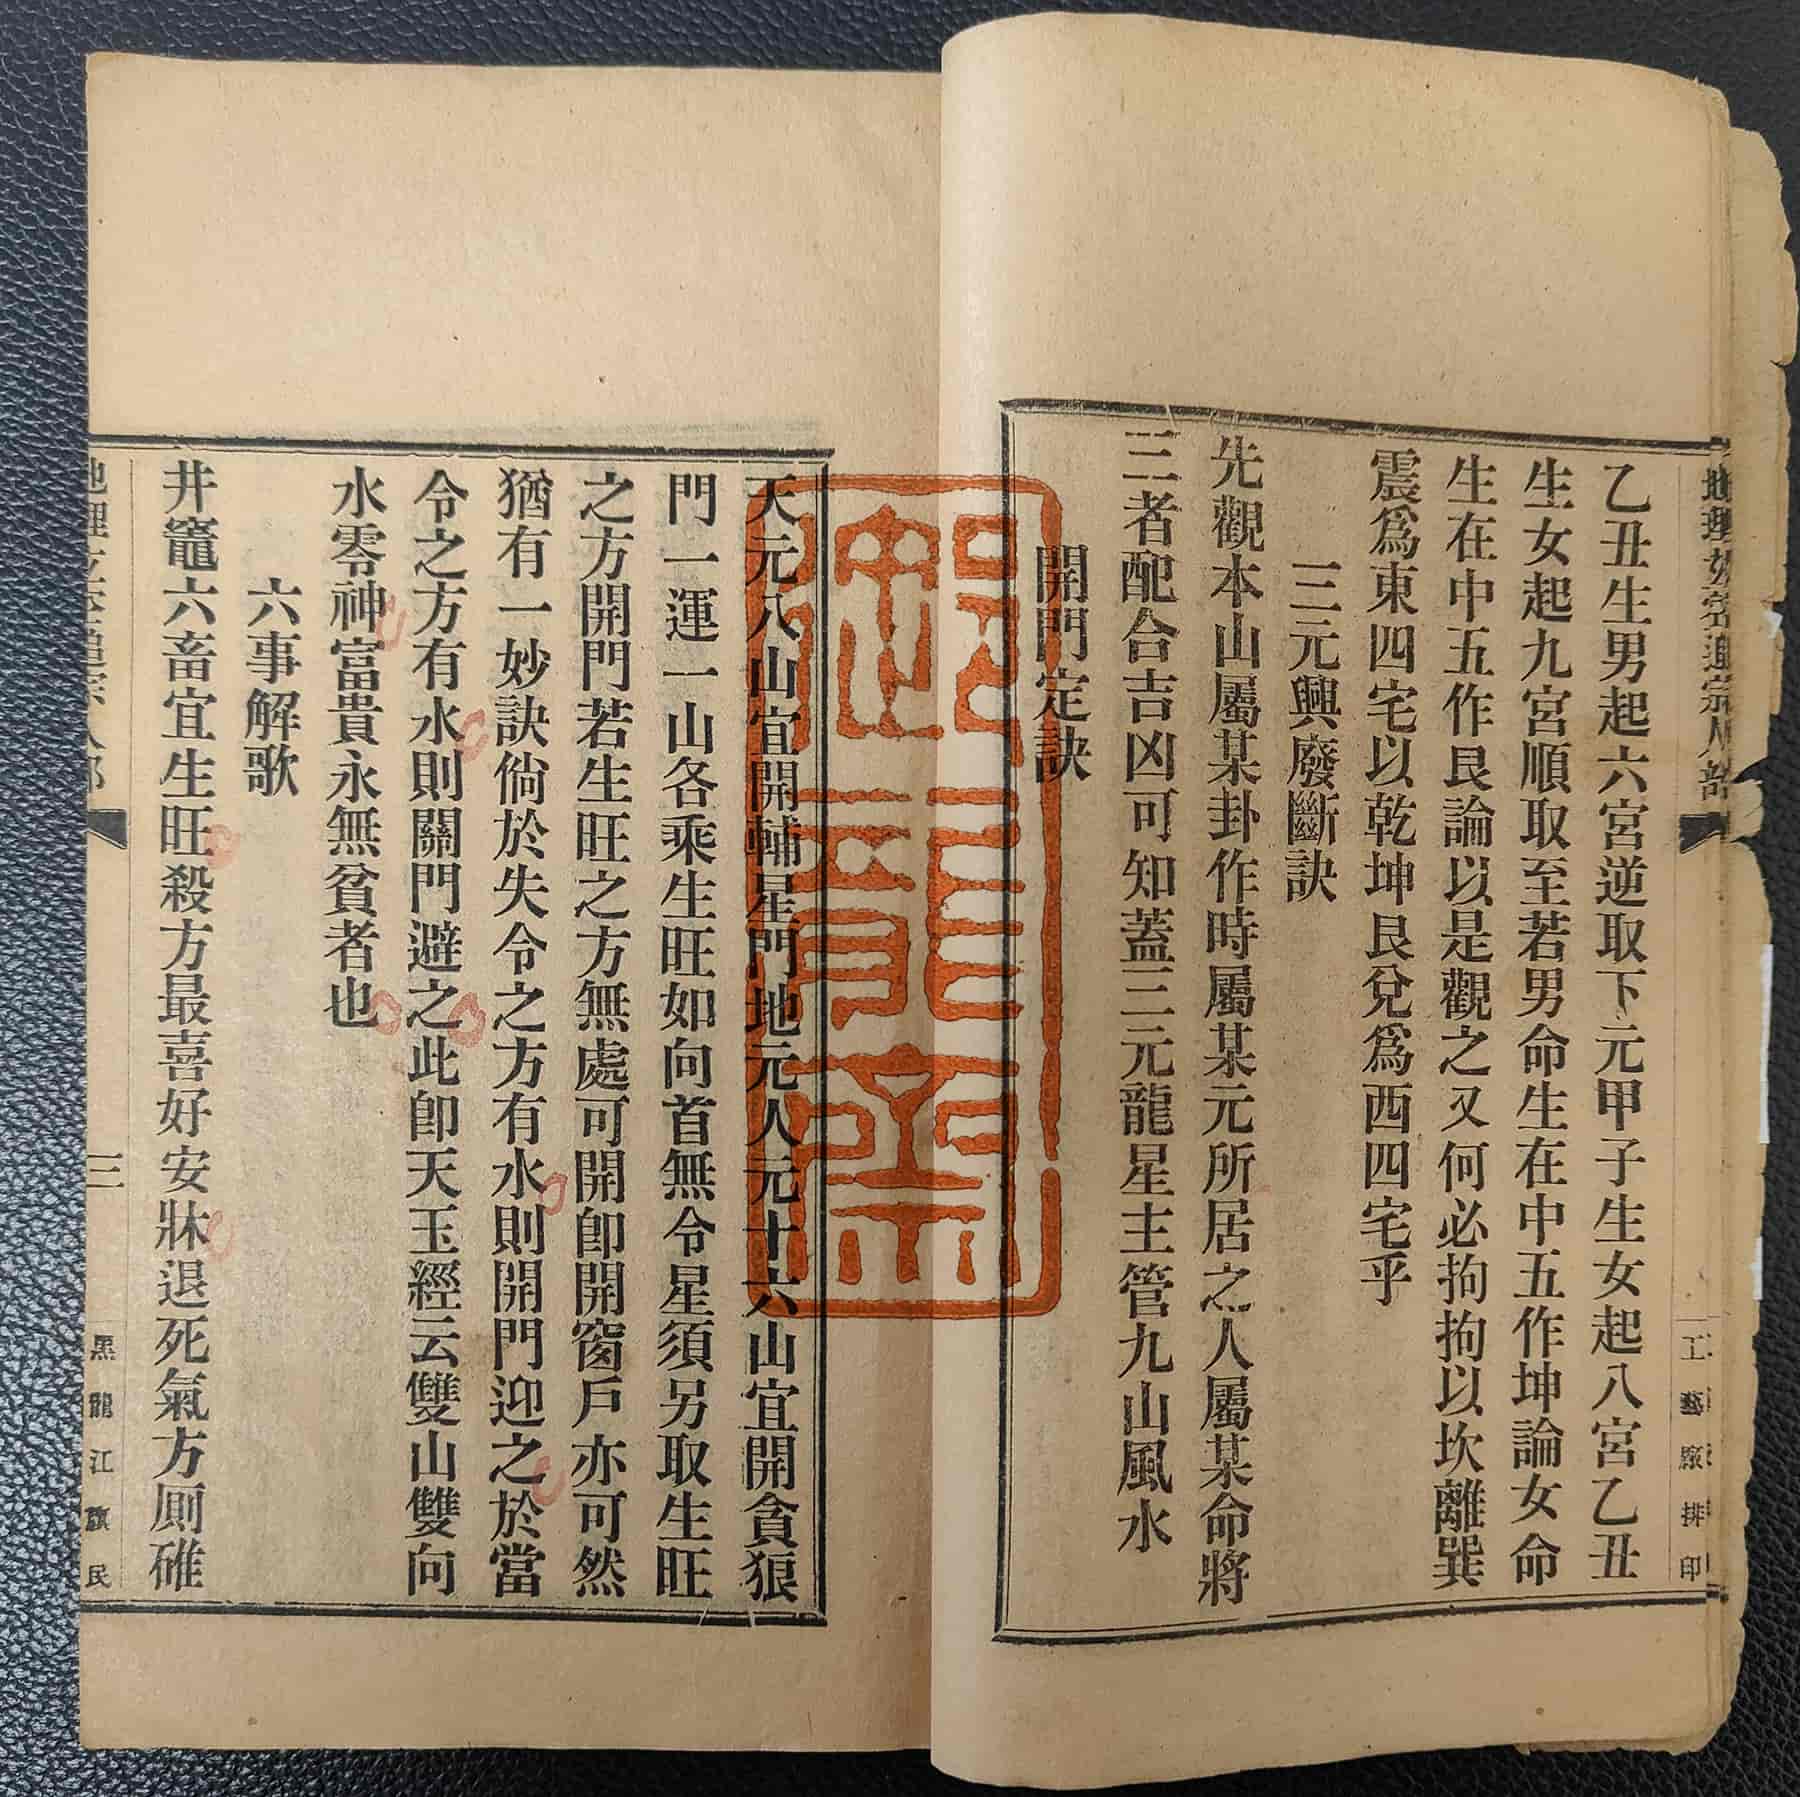 乙丑生男起六宮逆取下元甲子生女起八宮乙丑
生女起九宮順取至若男命生在中五作坤論女命
生在中五作艮論以是觀之又何必拘拘以坎離巽
震爲東四宅以乾坤艮兌爲西四宅乎
三元興廢斷訣
先觀本山屬某卦作時屬某元所居之人屬某命將
三者配合吉凶可知蓋三元龍星主管九山風水
開門定訣
天元八山宜開輔星門地元人元十六山宜開貪狼
門一運一山各乘生旺如向首無令星須另取生旺
之方開門若生旺之方無處可開卽開窗戶亦可然
猶有一妙訣倘於失令之方有水則開門迎之於當
令之方有水則關門避之此卽天玉經云雙山雙向
水零神富貴永無貧者也
六事解歌
井竈六畜宜生旺殺方最喜好安牀退死氣方厠碓
工藝廠排印
三
黑龍江旗民